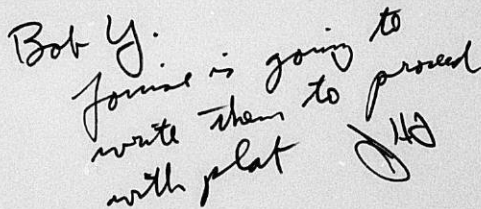 Bob Y.
is going to
write them to proceed
with plat JHJ